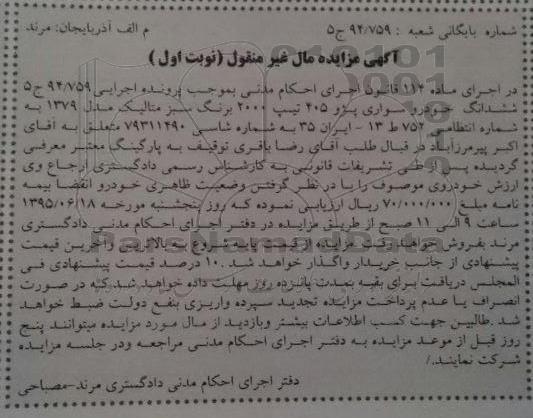 شماره بایگانی شعبه : ۹۴/۷۵۹ ج۵
م الف آذربایجان: مرند
آگهی مزایده مال غیر منقول (نوبت اول)
در اجرای ماده ۱۱۴ قانون اجرای احکام مدنی بموجب پرونده اجرایی ۹۴/۷۵۹ ج۵
ششدانگ خودرو سواری پژو ۴۰۵ تیپ ۲۰۰۰ برنگ سبز متالیک مدل ۱۳۷۹ به
شماره انتظامی ۷۵۲ ط ۱۳ - ایران ۳۵ به شماره شاسی ۷۹۳۱۱۴۹۰ متعلق به آقای
اکبر پیرمرزآباد در قبال طلب آقای رضا باقری توقیف به پارکینگ معتبر معرفی
گردیده پس از طی تشریفات قانونی به کارشناس رسمی دادگستری ارجاع وی
ارزش خودروی موصوف را با در نظر گرفتن وضعیت ظاهری خودرو انقضا بیمه
نامه مبلغ ۷۰/۰۰۰/۰۰۰ ریال ارزیابی نموده که روز پنجشنبه مورخه ۱۳۹۵/۰۶/۱۸
ساعت ۹ الی ۱۱ صبح از طریق مزایده در دفتر اجرای احکام مدنی دادگستری
مرند بفروش خواهد رفت مزایده از قیمت پایه شروع به بالاترین و آخرین قیمت
پیشنهادی از جانب خریدار واگذار خواهد شد .۱۰ درصد قیمت پیشنهادی فی
المجلس دریافت برای بقیه بمدت پانزده روز مهلت داده خواهد شد که در صورت
انصراف یا عدم پرداخت مزایده تجدید سپرده واریزی بنفع دولت ضبط خواهد
شد .طالبین جهت کسب اطلاعات بیشتر وبازدید از مال مورد مزایده میتوانند پنج
روز قبل از موعد مزایده به دفتر اجرای احکام مدنی مراجعه ودر جلسه مزایده
شرکت نمایند./
دفتر اجرای احکام مدنی دادگستری مرند-مصباحی